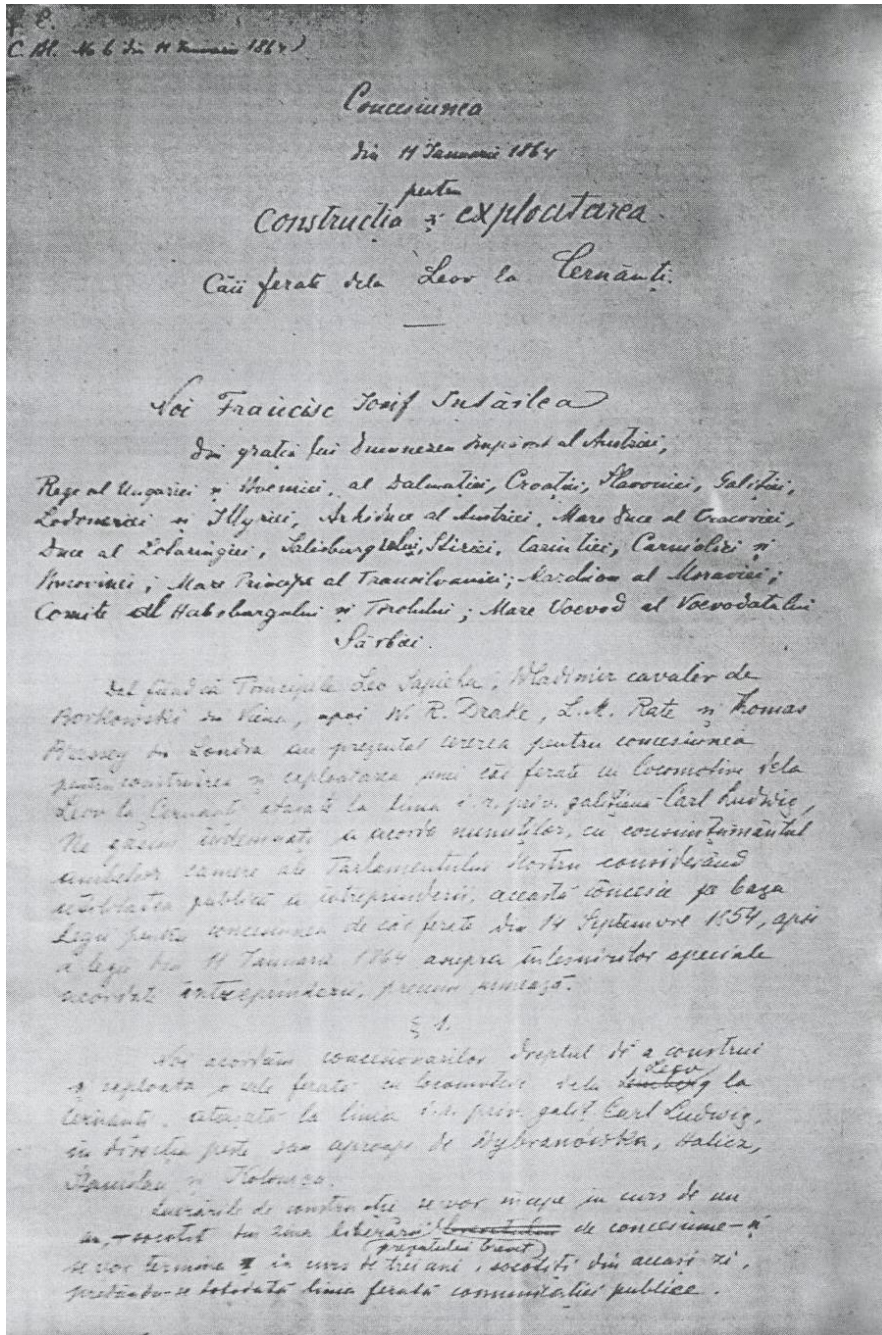 C. Bl. No 6 din 11 Ianuarie 1864)
Concesiunea
din 11 Ianuarie 1864
pentru
Construcția și exploatarea
Căii ferate dela Leov la Cernăuți.
Noi Francisc Iosif Întâilea
din grația lui Dumnezeu Împărat al Austriei,
Rege al Ungariei și Boemiei, al Dalmației, Croației, Slavoniei, Galiției,
Lodomeriei și Illyriei, Arhiduce al Austriei, Mare Duce al Cracoviei,
Duce al Lotaringiei, Salisburgului, Stiriei, Carintiei, Carnioliei și
Bucovinei; Mare Principe al Transilvaniei; Marchion al Moraviei;
Comite al Habsburgului și Tirolului; Mare Voevod al Voevodatului
Sârbiei.
Dat fiind că Principele Leo Sapieha, Wladimir cavaler de
Borkowski din Viena, apoi W. R. Drake, L. M. Rate și Thomas
Brassey din Londra au prezentat cererea pentru concesiunea
pentru construirea și exploatarea unei căi ferate cu locomotive dela
Leov la Cernăuți atașată la linia c. r. priv. galițiana Carl Ludwig,
Ne găsim îndemnați a acorda numiților, cu consimțământul
ambelor camere ale Parlamentului Nostru considerând
utilitatea publică a întreprinderii, această concesie pe baza
Legii pentru concesiunea de căi ferate din 14 Septemvre 1854, apoi
a legii din 11 Ianuarie 1864 asupra înlesnirilor speciale
acordate întreprinderii, precum urmează:
§ 1.
Noi acordăm concesionarilor dreptul de a construi
Leov
și exploata o cale ferată cu locomotive dela Lemberg la
Cernăuți, atașată la linia c. r. priv. galiț. Carl Ludwig,
în direcția peste sau aproape de Wybranówka, Halicz,
Stanislau și Kolomea.
Lucrările de construcție se vor începe în curs de un
an, – socotit din ziua liberării de concesiune – și
prezentului brevet
se vor termina în curs de trei ani, socotiți din aceași zi,
predându-se totodată linia ferată comunicației publice.